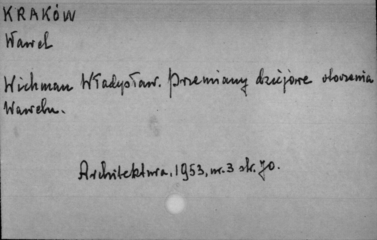 KRAKÓW
Wawel
Wichman Władysław. Przemiany dziejowe otoczenia
Wawelu.
Architektura, 1953, nr. 3 str. 70.